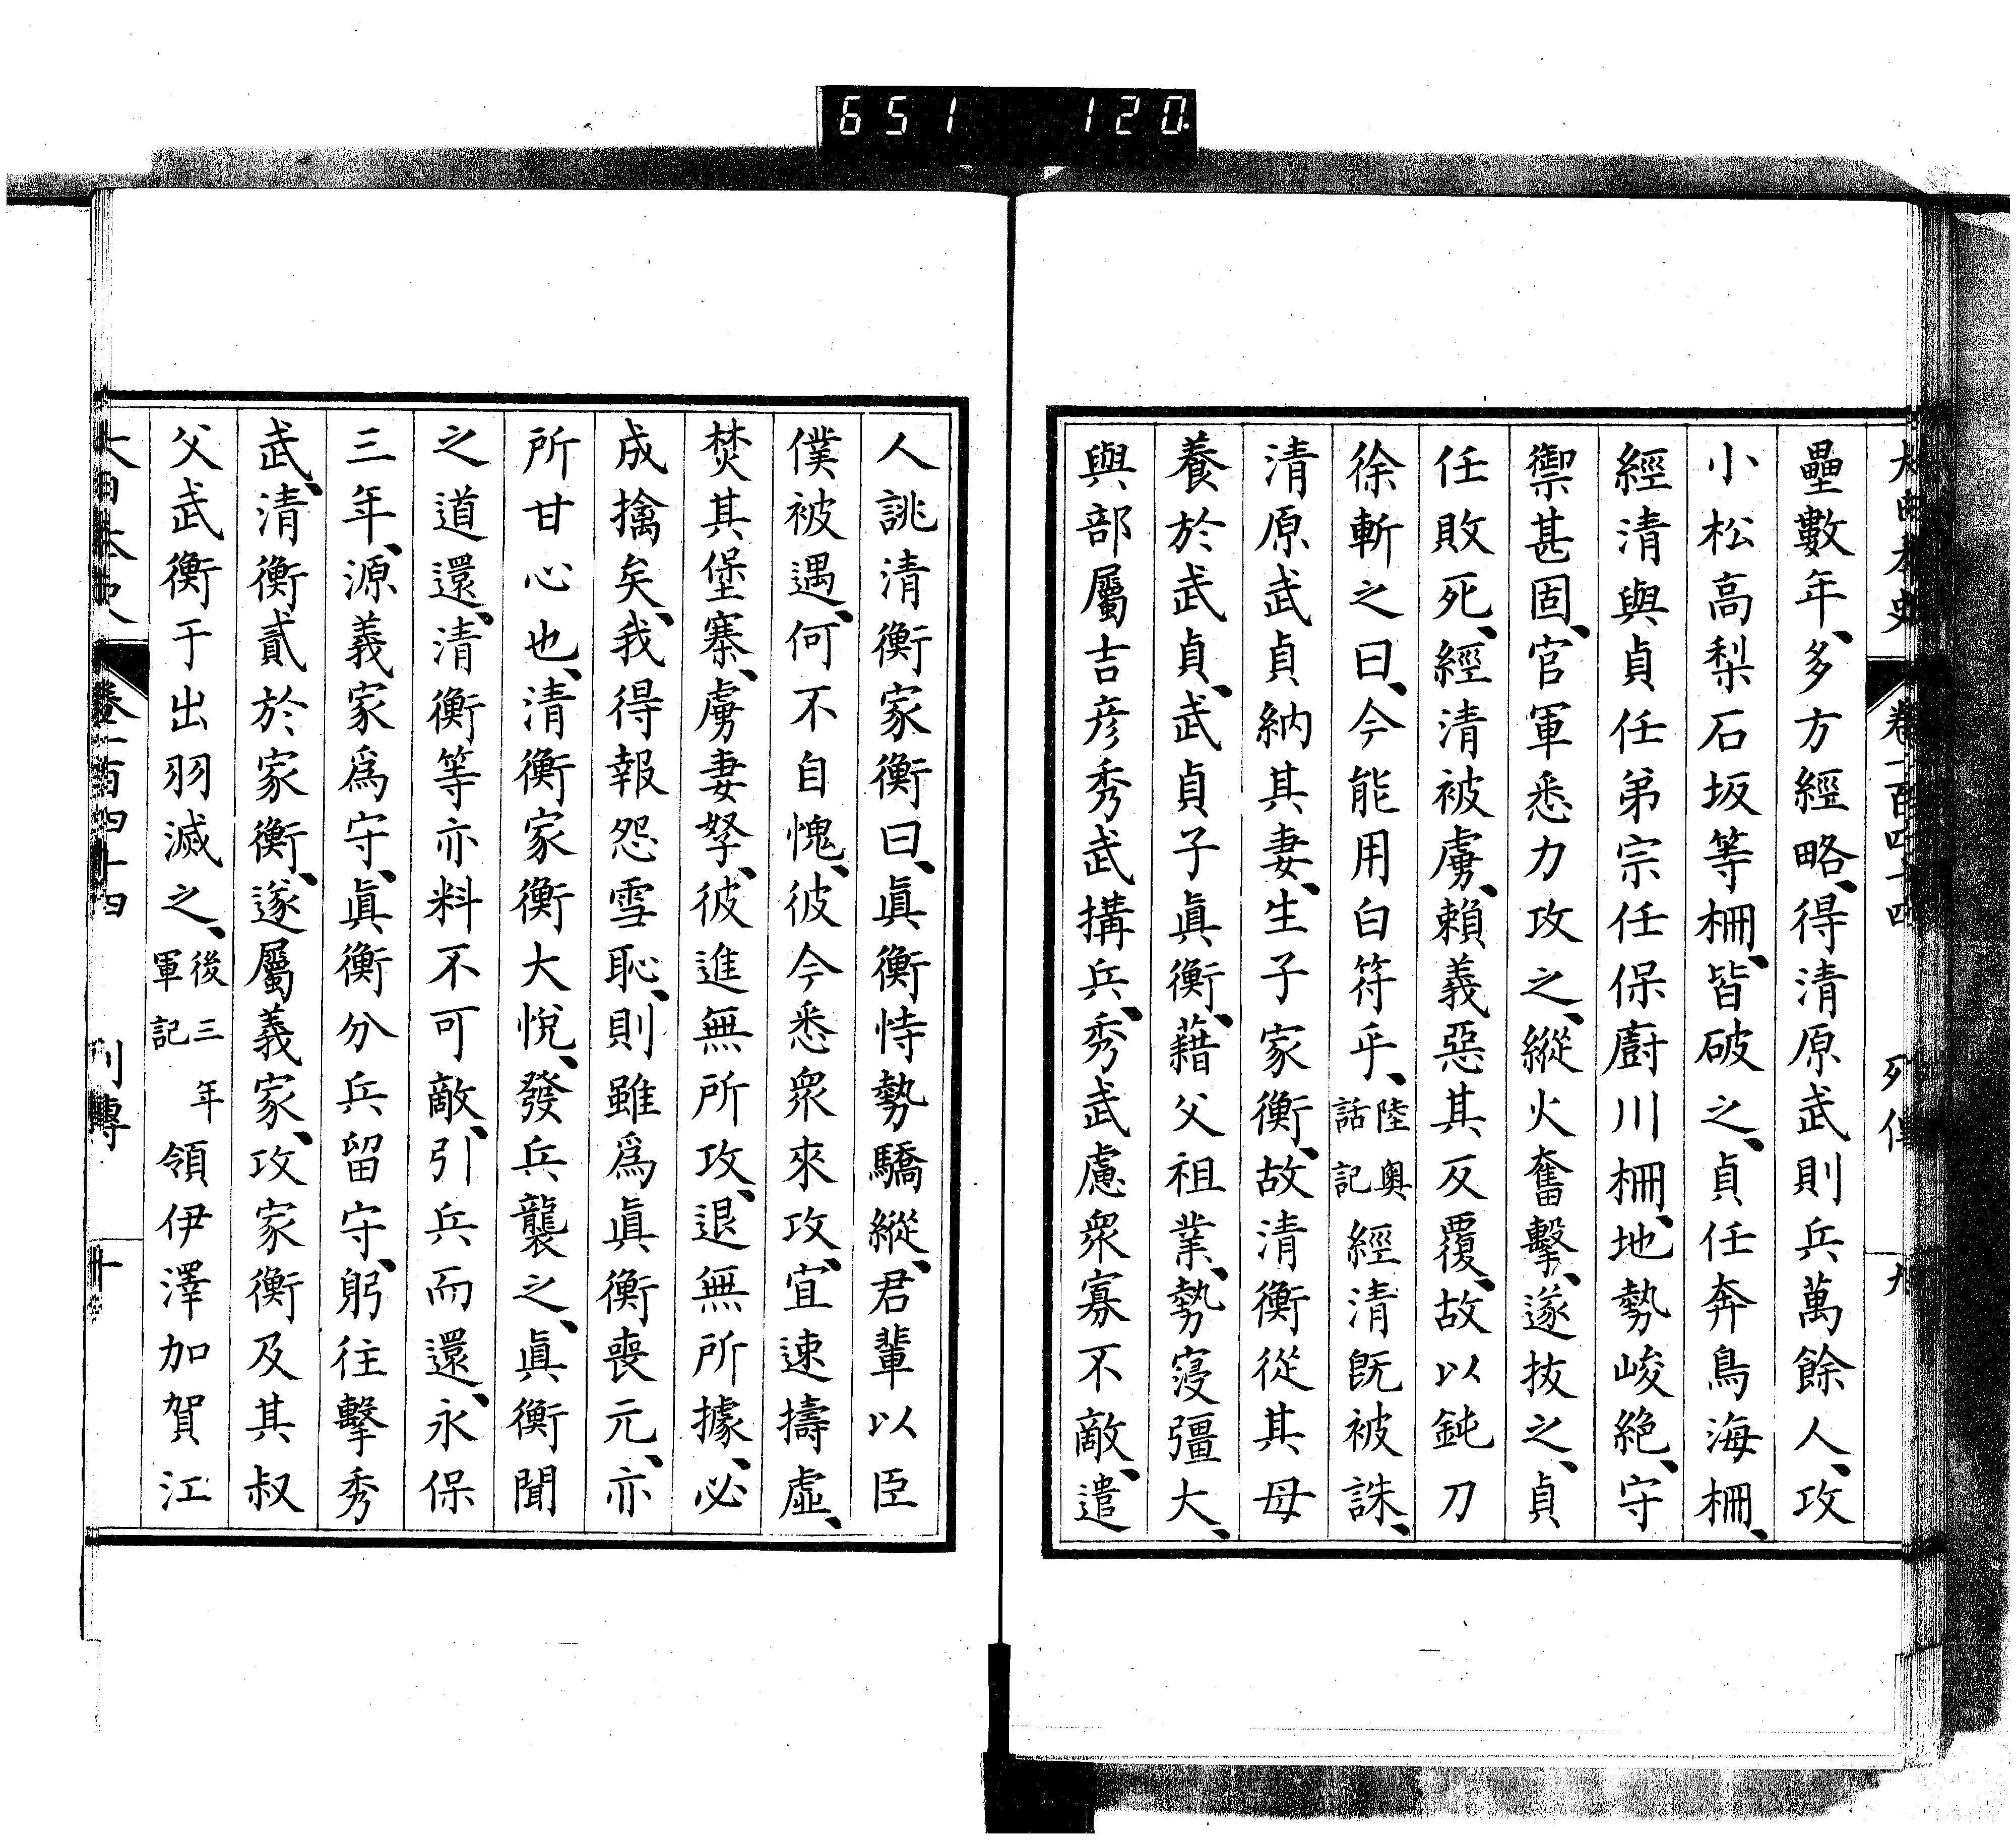 651 120
大日本史 卷一百四十四 列傳 九
壘數年、多方經略、得清原武則兵萬餘人、攻
小松高梨石坂等柵、皆破之、貞任奔鳥海柵、
經清與貞任弟宗任保廚川柵、地勢峻絶、守
禦甚固、官軍悉力攻之、縱火奮擊、遂拔之、貞
任敗死、經清被虜、賴義惡其反覆、故以鈍刀
徐斬之曰、今能用白符乎、陸奧話記經清既被誅、
清原武貞納其妻、生子家衡、故清衡從其母
養於武貞、武貞子眞衡、藉父祖業、勢寖彊大、
與部屬吉彦秀武搆兵、秀武慮衆寡不敵、遣
人誂清衡家衡曰、眞衡恃勢驕縱、君輩以臣
僕被遇、何不自愧、彼今悉衆來攻、宜速擣虛、
焚其堡寨、虜妻孥、彼進無所攻、退無所據、必
成擒矣、我得報怨雪恥、則雖爲眞衡喪元、亦
所甘心也、清衡家衡大悅、發兵襲之、眞衡聞
之道還、清衡等亦料不可敵、引兵而還、永保
三年、源義家爲守、眞衡分兵留守、躬往擊秀
武、清衡貳於家衡、遂屬義家、攻家衡及其叔
父武衡于出羽滅之、後三年軍記領伊澤加賀江
大日本史 卷一百四十四 列傳 十